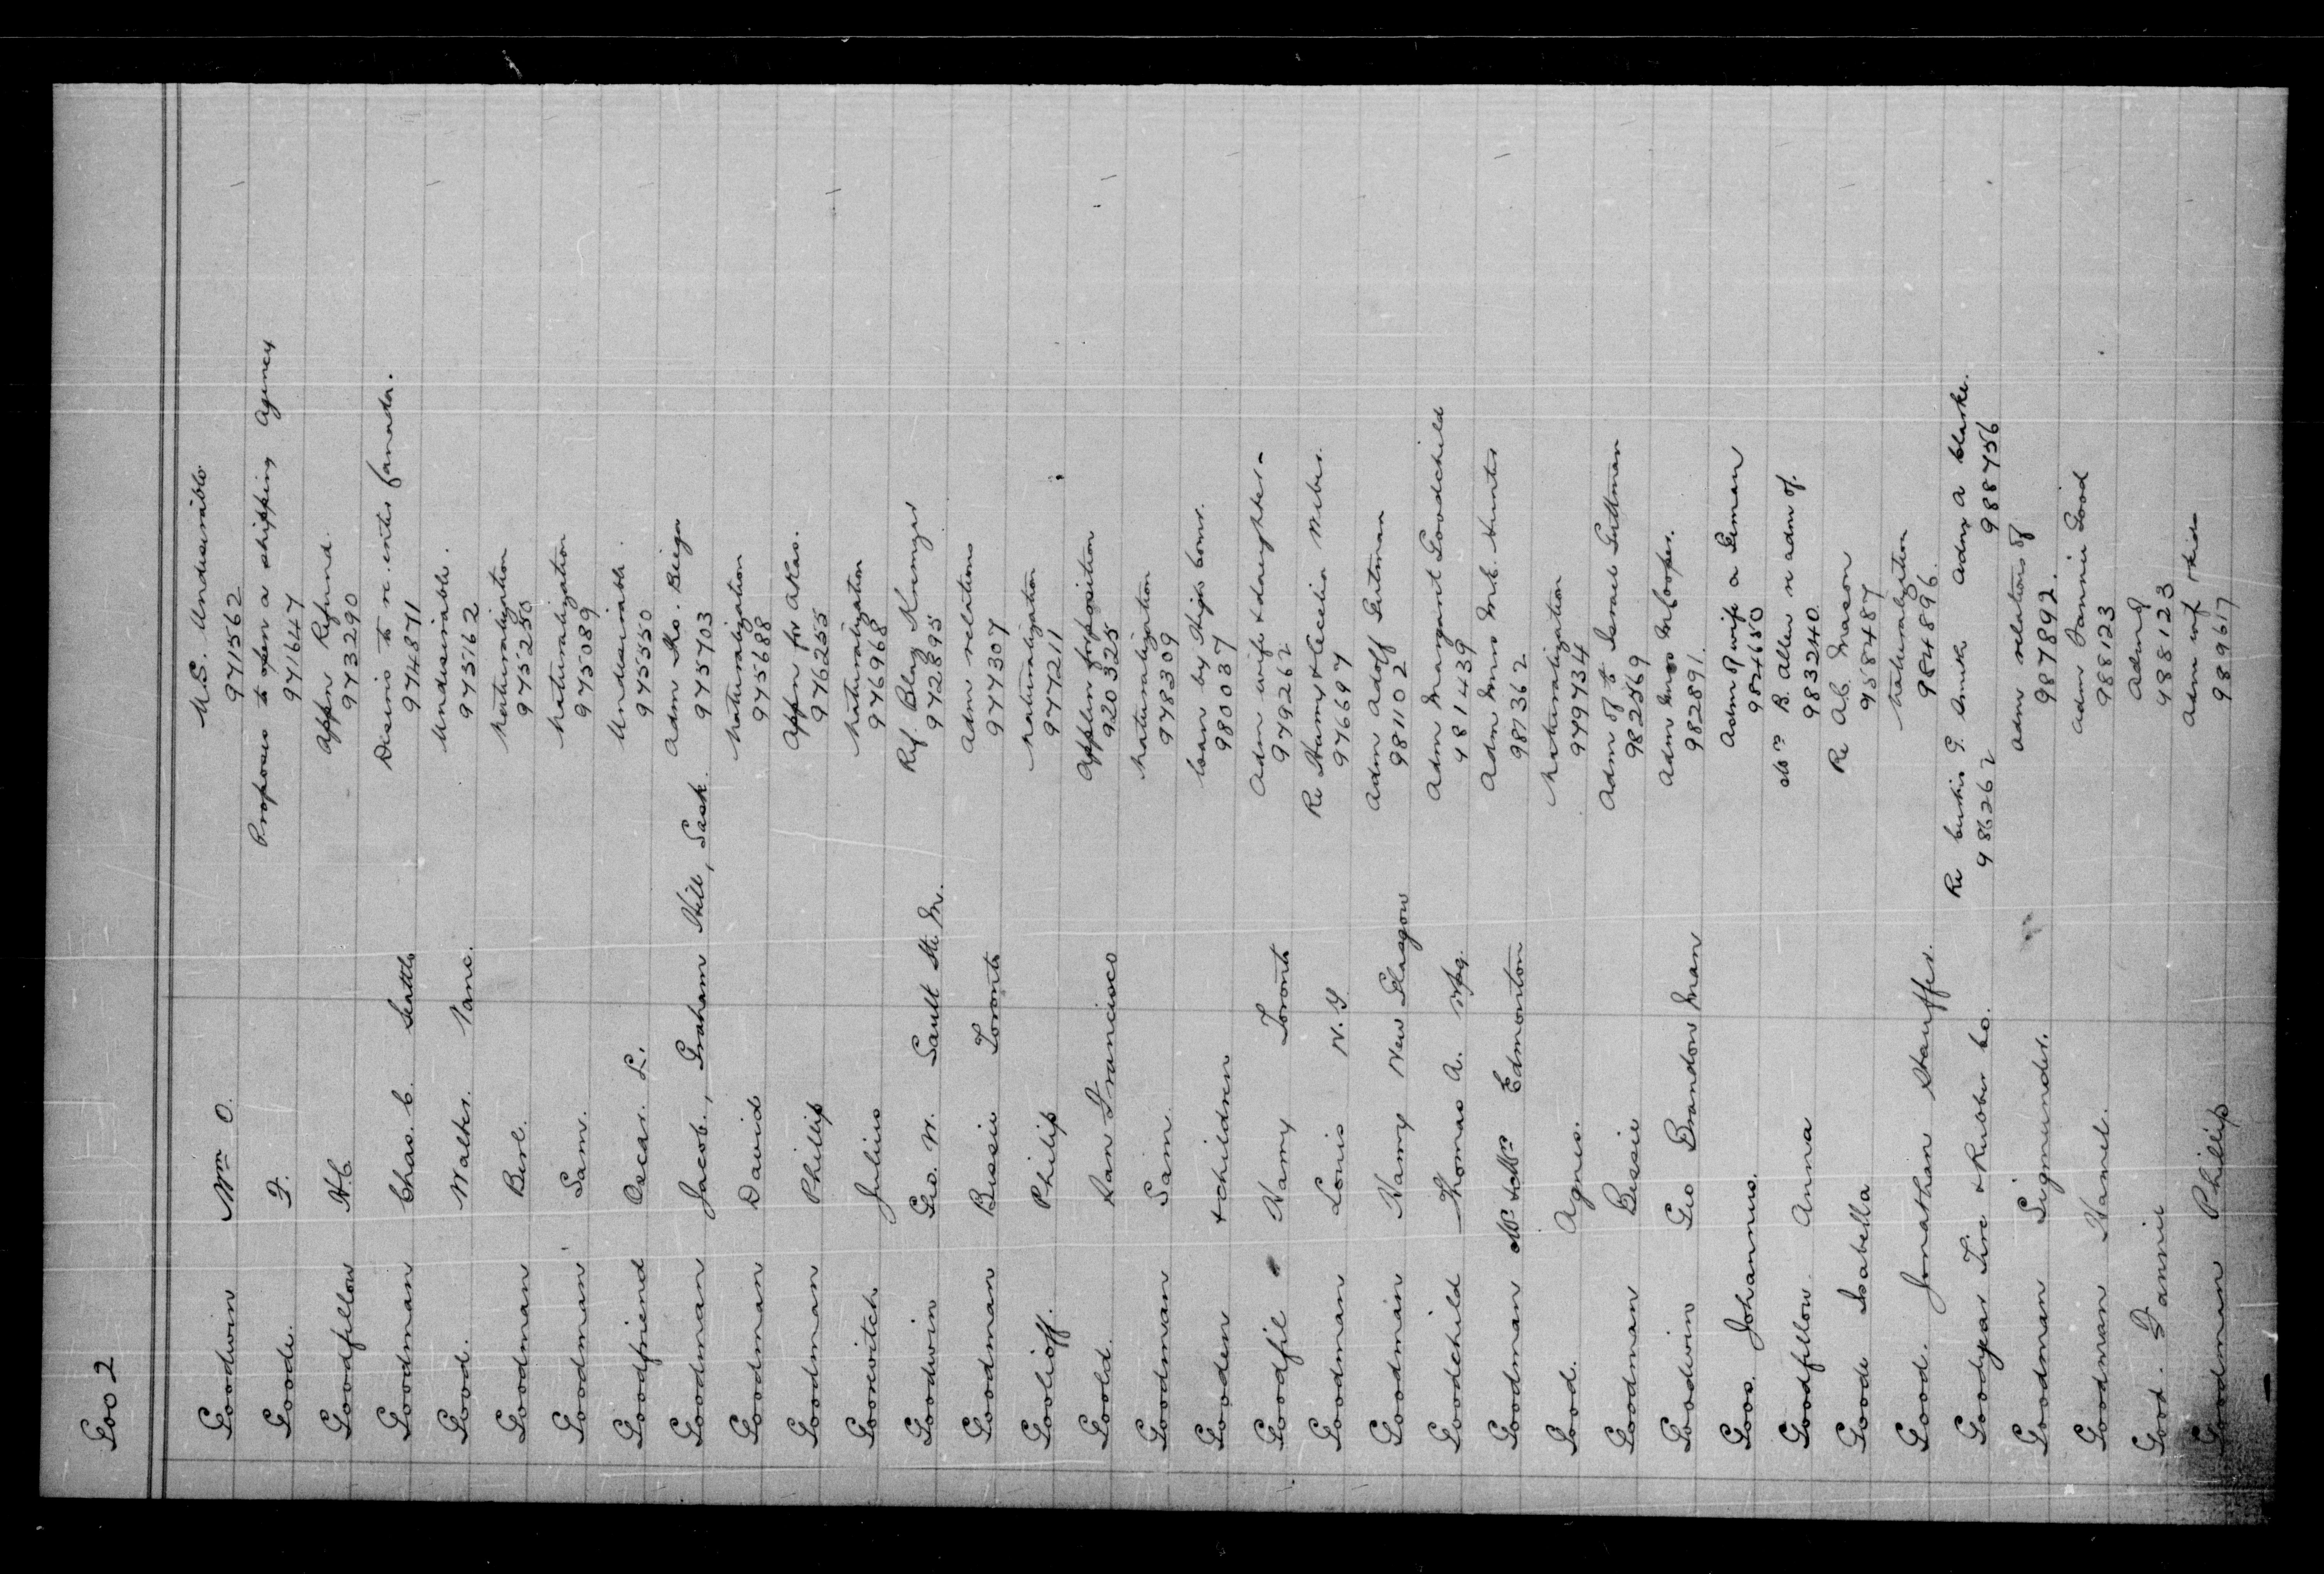 Goo 2
Goodwin Wm O. U.S. Undesirable
971562
Goode. F. Proposes to open a shipping Agency
971647
Goodfellow H.C. Appn Refund.
973290
Goodman Chas. C. Seattle Desires to re. enter Canada.
974871
Good. Walter. Vanc. Undesirable.
975162
Goodman Berl. Naturalization
975250
Goodman Sam. Naturalization
975089
Goodfriend Oscar. L. Undesirable.
975550
Goodman Jacob., Graham Hill, Sask. Adm Mo. Biega
975703
Goodman David Naturalization
975688
Goodman Phillip Appn for
976255
Goorevitch Julius Naturalization
976968
Goodwin Geo. W. Sault Ste. M. Ref. Blaz
972895
Goodman Bessie Toronto Adm relations
977307
Goolioff. Philip Naturalization
977211
Goold. San Francisco Appln for position
920325
Goodman Sam. Naturalization
978309
Gooden & children Loan by
980037
Goodfil Harry Toronto Adm wife & daughter-
979262
Goodman Louis N.Y. Re Harry & Cecelia
976697
Goodman Harry New Glasgow Adm Adolf Gutman
981102
Goodchild Thomas A. Wpg. Adm Margaret Goodchild
981439
Goodman Mr & Mrs Edmonton Adm Miss M.C. Hunter
987362
Good. Agnes. Naturalization
979734
Goodman Bessie Adm of to Israel Guttman
982569
Goodwin Geo Brandon Man Adm Miss M Cooper.
982891.
Goos. Johannus. Adm of wife a German
984650
Goodfellow Anna Mrs B. Allen re adm of.
983240
Goode Isabella Re A.C. Mason
958487
Good. Jonathan Stauffer. Naturalization
984896.
Goodyear Tire & Rubber Co. Re Curtis G. Smith Adm A Clarke.
986262 988756
Goodman Sigmunder. Adm relations of
987892.
Goodman Hamel. Adm Fannie Good
988123
Good. Fannie Adm of
988123
Goodman Phillip Adm wif
989617